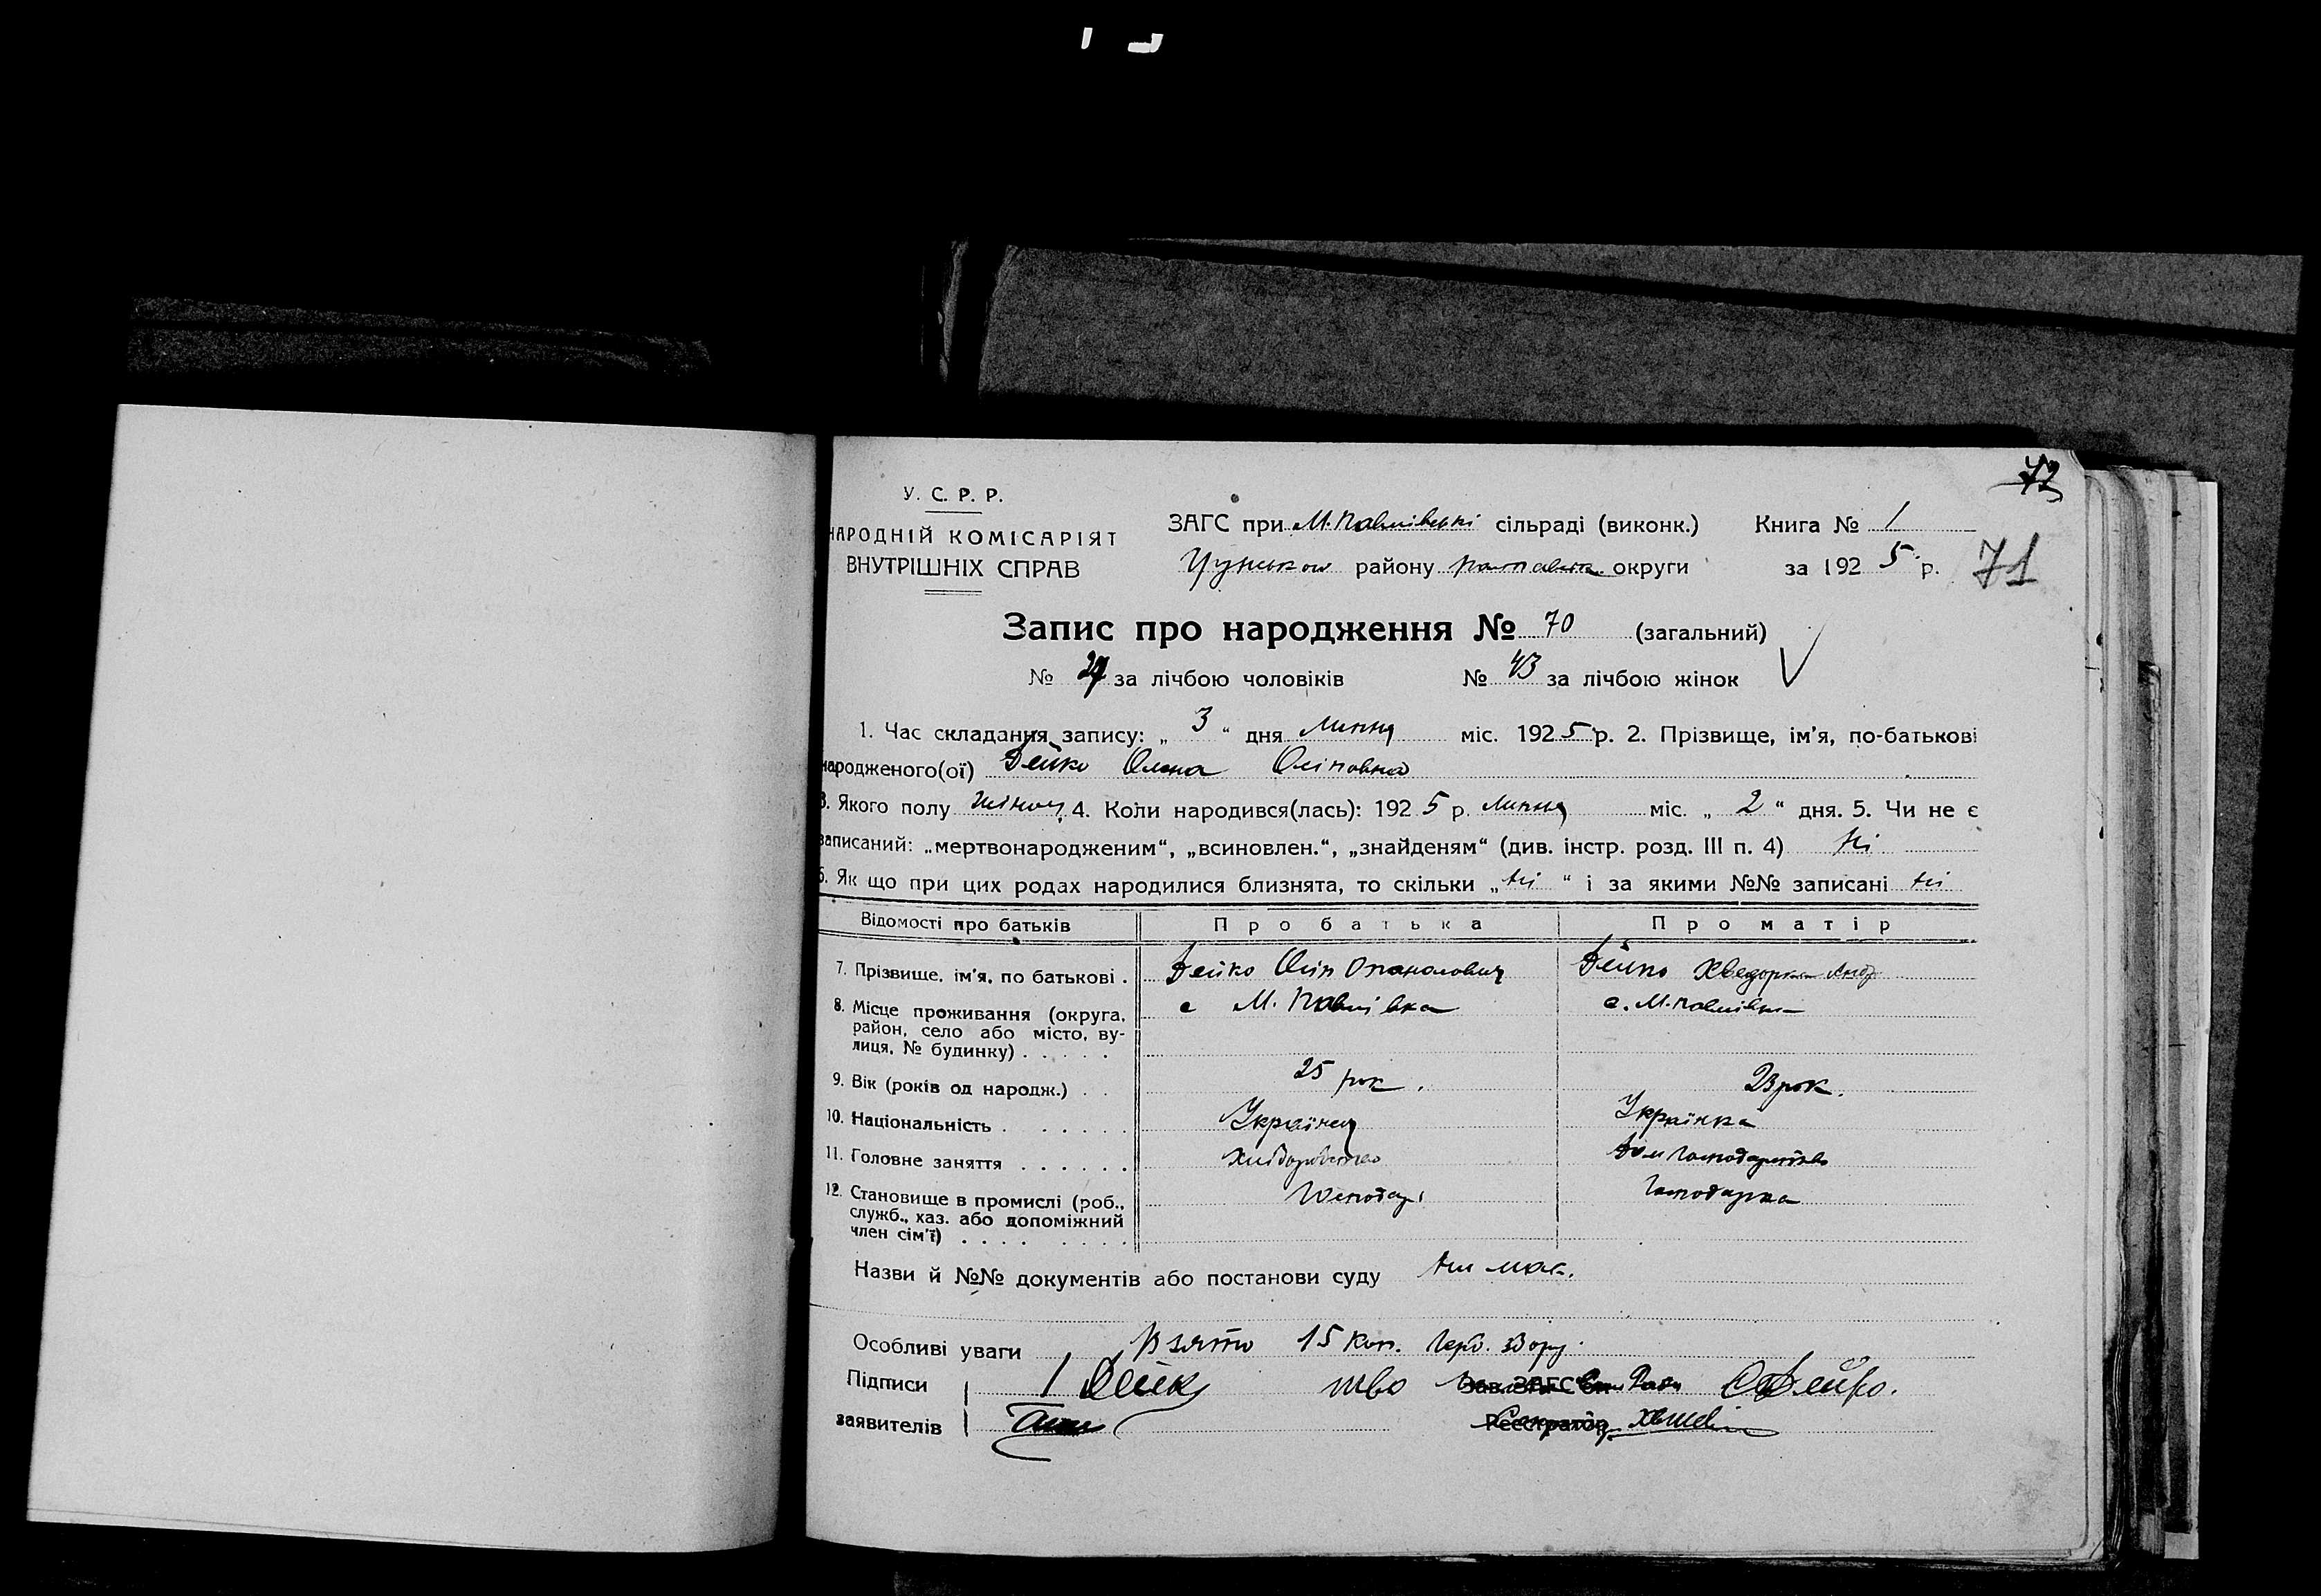 72
У. С. Р. Р.
НАРОДНІЙ КОМІСАРІЯТ
ВНУТРІШНІХ СПРАВ
ЗАГС при М. Павлівські сільраді (виконк.) Книга № 1
району округи за 1925 р. 71
Запис про народження № 70 (загальний)
№ за лічбою чоловіків № 43 за лічбою жінок
1. Час складання запису: „ 3 “ дня Липня міс. 1925 р. 2. Прізвище, ім'я, по-батькові
народженого(ої) Дейко Олена Осіповна
3. Якого полу 4. Коли народився(лась): 1925 р. Липня міс. „ 2 “ дня. 5. Чи не є
записаний: „мертвонародженим“, „всиновлен.“, „знайденям“ (див. інстр. розд. III п. 4) Ні
6. Як що при цих родах народилися близнята, то скільки „ Ні “ і за якими №№ записані Ні
Відомості про батьків Про батька Про матір
7. Прізвище, ім'я, по батькові . Дейко Осіп Опанасович Дейко Хведорка
8. Місце проживання (округа, с М. Павлівка с. М. Павлівка
район, село або місто, ву-
лиця, № будинку) . . . . .
9. Вік (років од народж.) . . 25 рок. 23 рок.
10. Національність . . . . . . Українец Українка
11. Головне заняття . . . . . . Хліборобство Дом Господарство
12. Становище в промислі (роб., Господар Господарка
служб., хаз. або допоміжний
член сім'ї) . . . . . . . .
Назви й №№ документів або постанови суду Не має.
Особливі уваги Взято 15 коп. Герб. збору.
Підписи Дейко Зав. ЗАГС'ом Дейко.
заявителів Реєстратор